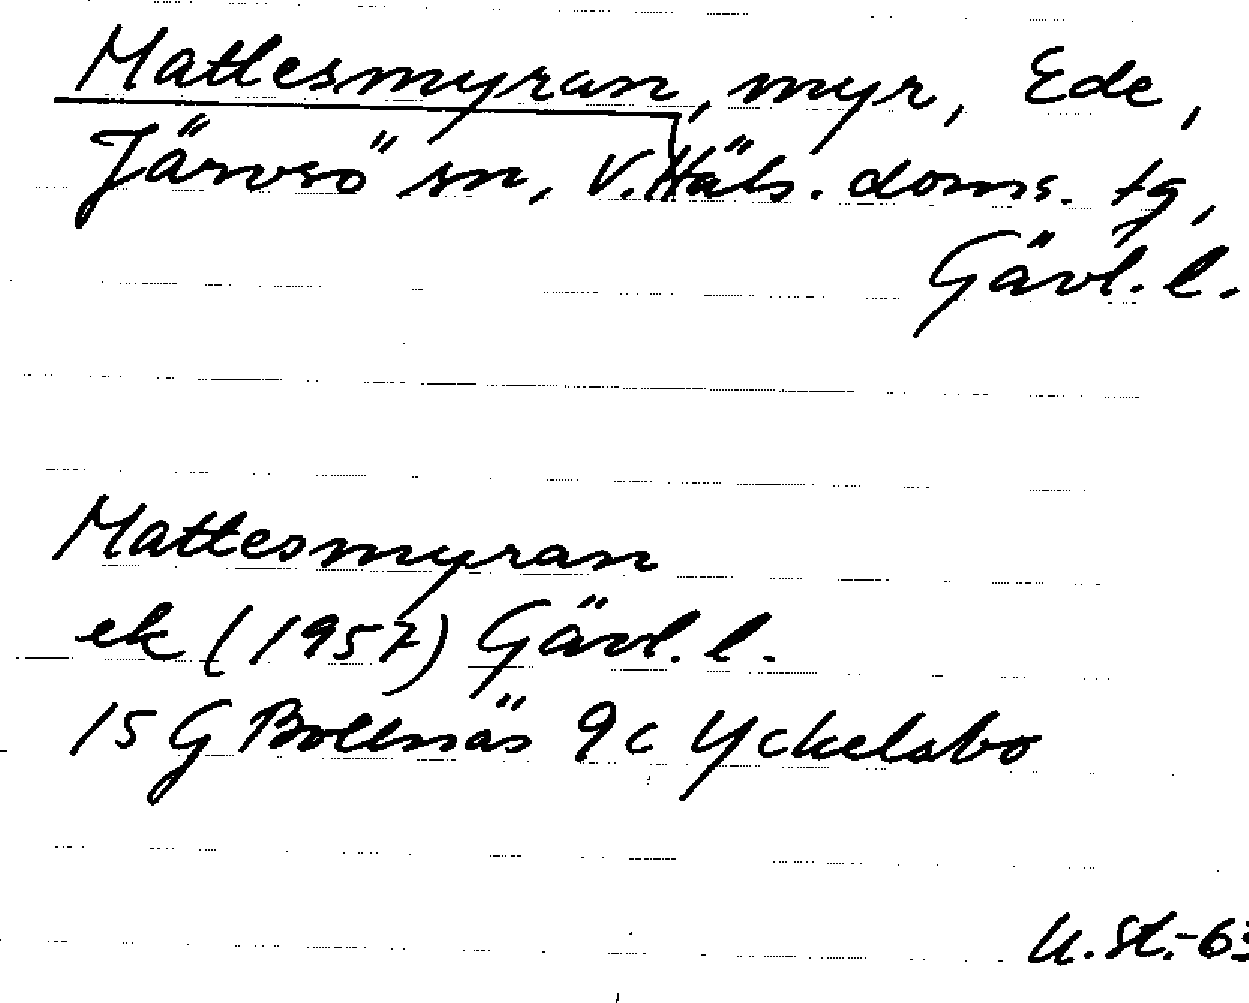 Mattesmyran, myr, Ede,
Järvsö sn, V. Häls. doms. tg,
Gävl. l.
Mattesmyran
ek (1957) Gävl. l.
15 G Bollnäs 9c Yckelsbo
U. St. -63